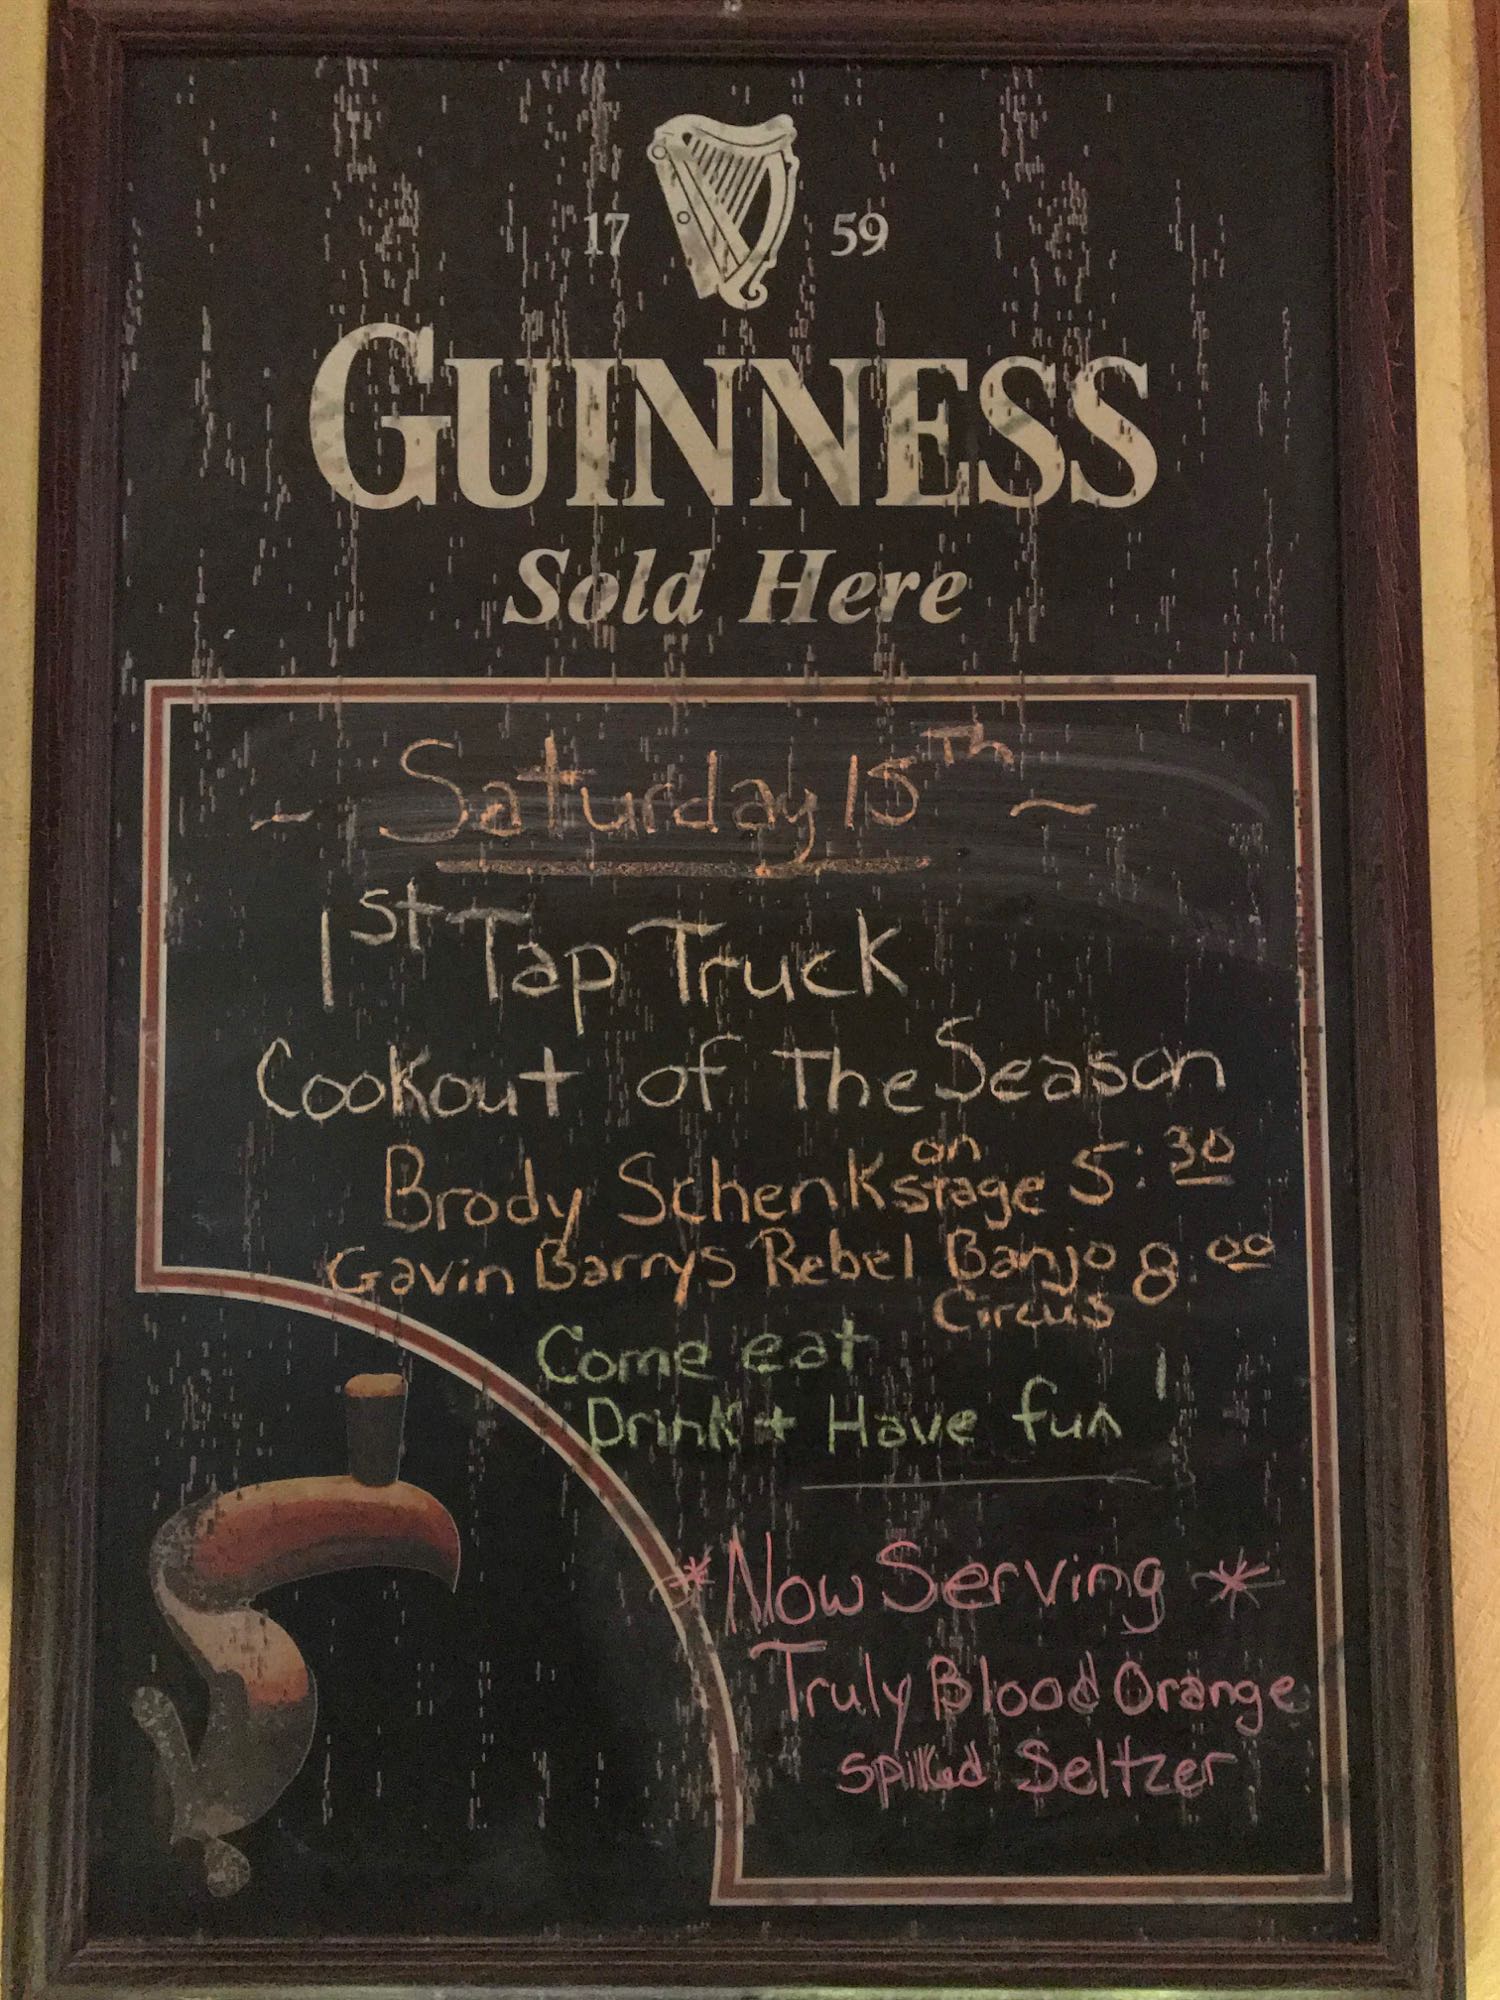 17 59
GUINNESS
Sold Here
~ Saturday 15Th ~
1st Tap Truck
Cookout of The Season
Brody Schenk on stage 5:30
Gavin Barrys Rebel Banjo Circus 8:00
Come eat
Drink + Have fun!
* Now Serving *
Truly Blood Orange
Spiked Seltzer